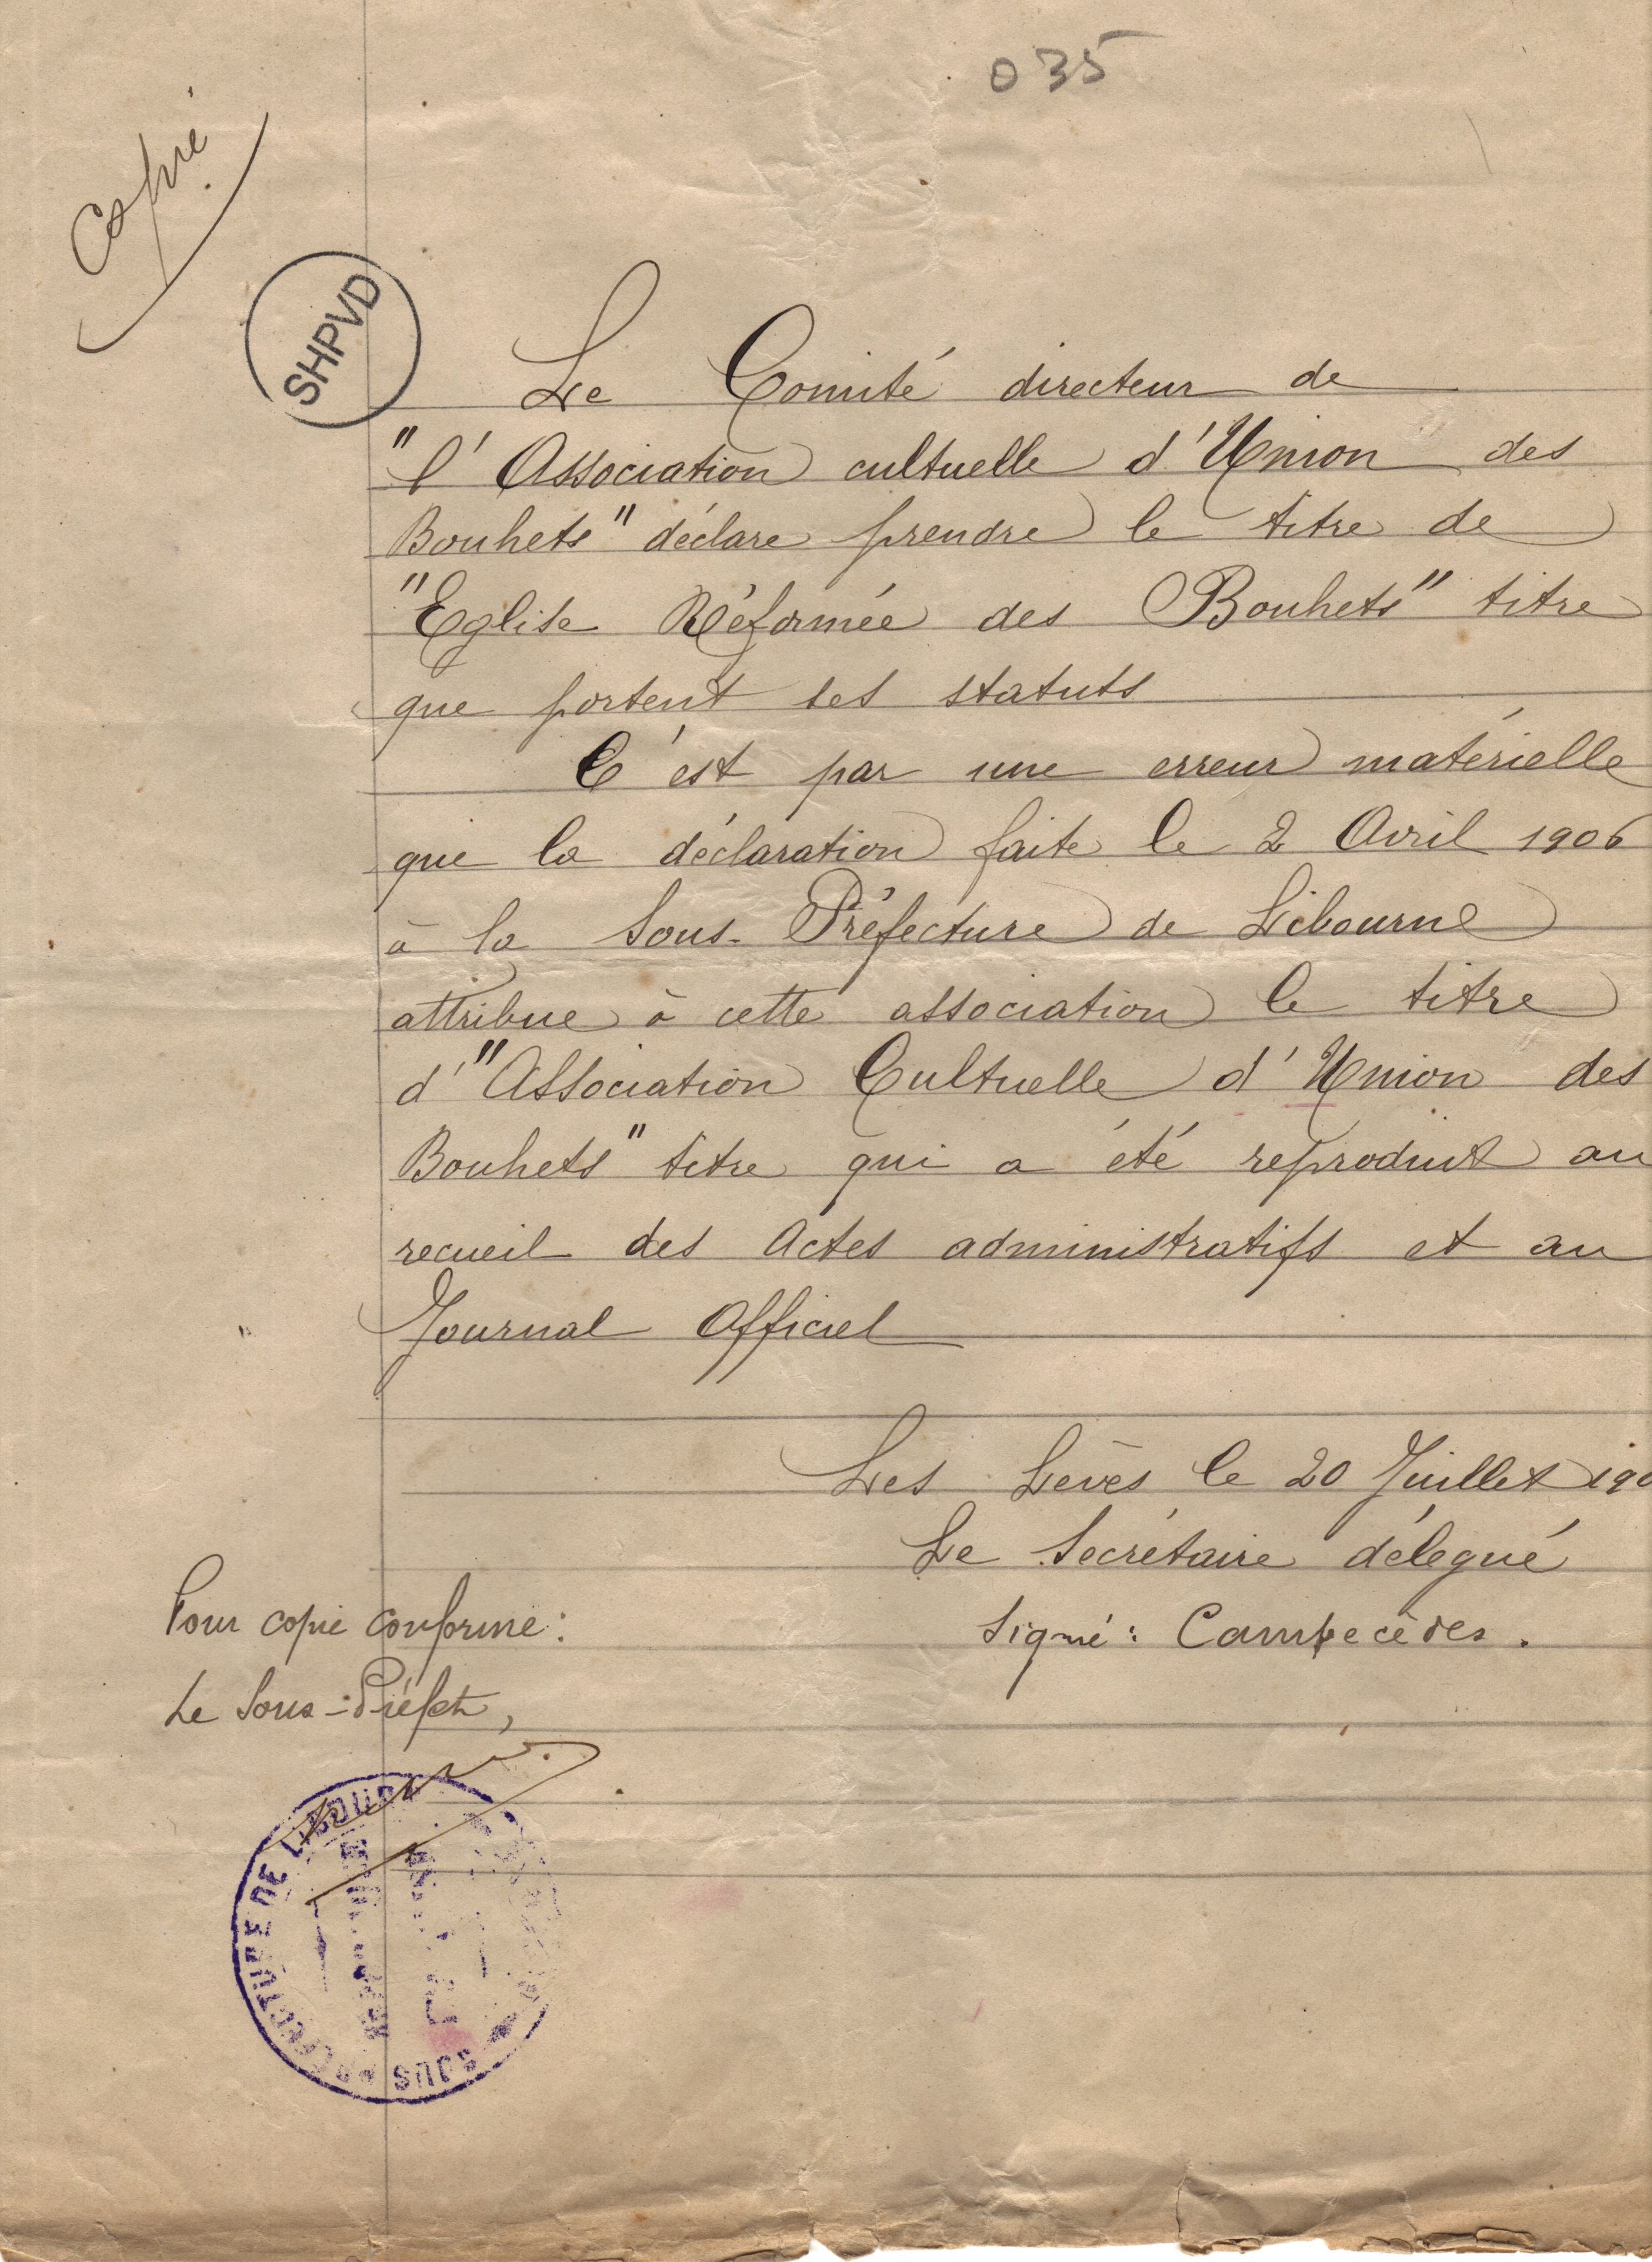 035
Copie
SHPVD
Le Comité directeur de
"l'Association cultuelle d'Union des
Bouhets" déclare prendre le titre de
"Eglise Réformée des Bouhets" titre
que portent ses statuts
C'est par une erreur matérielle
que la déclaration faite le 2 Avril 1906
à la Sous-Préfecture de Libourne
attribue à cette association le titre
d'"Association Cultuelle d'Union des
Bouhets" titre qui a été reproduit au
recueil des Actes administratifs et au
Journal Officiel
Les Lèves le 20 Juillet 190
Le Secrétaire délégué
Signé: Cambecèdes.
Pour copie conforme:
Le Sous-Préfet,
SOUS PRÉFECTURE DE LIBOURNE